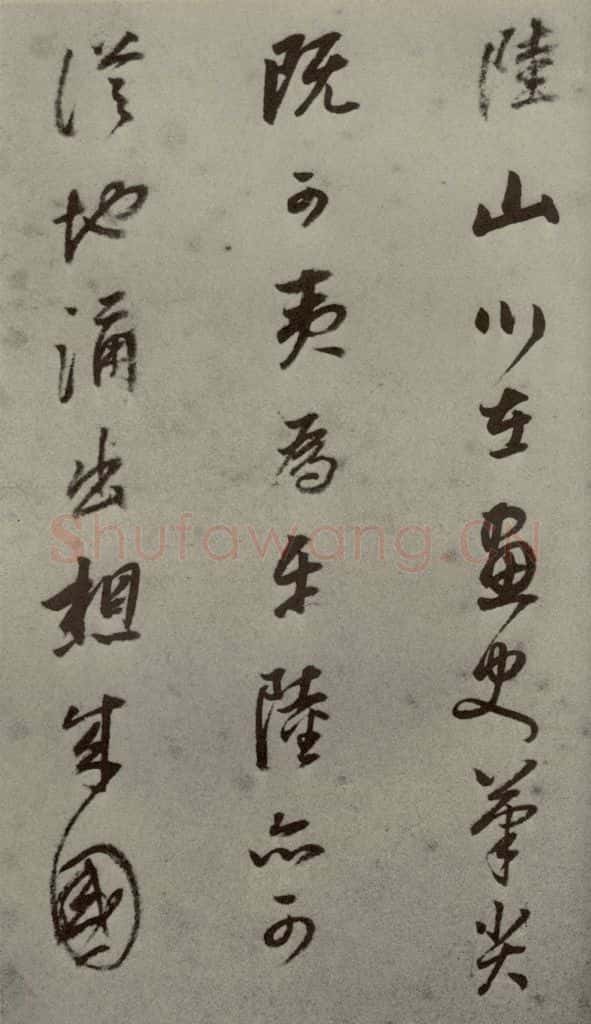 陸山川在畫史筆尖
既可夷為平陸亦可
從地涌出想朱國
Shufawang.CN